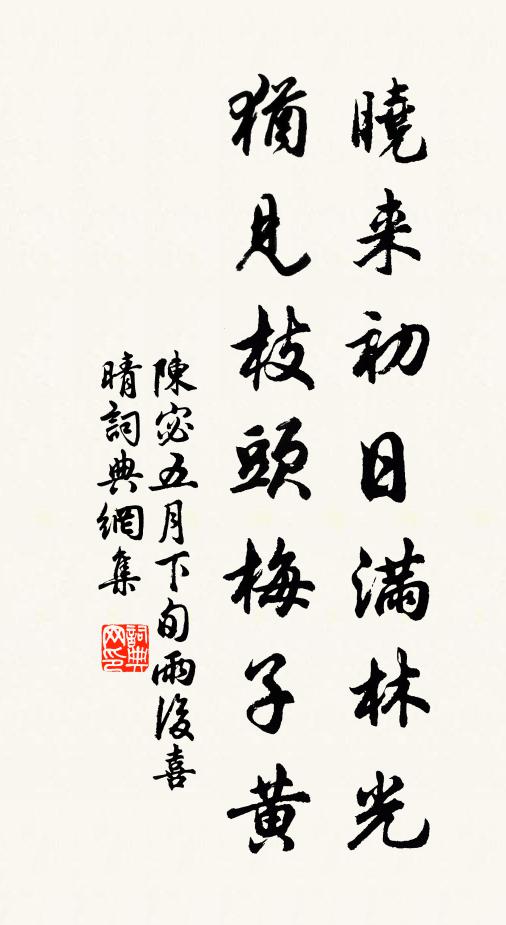 曉来初日滿林光
猶見枝頭梅子黃
陳宓五月下旬雨後喜
晴詞典網集
詞典网印